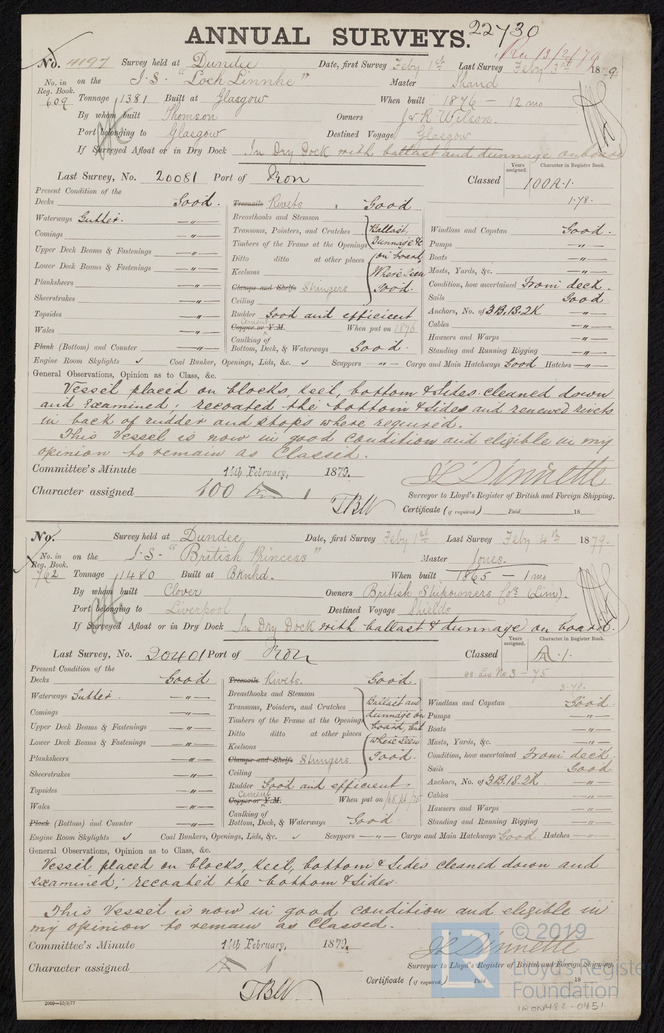 ANNUAL SURVEYS. 22730
Rec 13/2/79
No. 4197 Survey held at Dundee Date, first Survey Feby 1st Last Survey Feby 3rd 1879
No. in Reg. Book. on the I.S. "Loch Linnhe" Master Shand
609 Tonnage 1381 Built at Glasgow When built 1876 - 12 mo
By whom built Thomson Owners J & R Wilson.
Port belonging to Glasgow Destined Voyage Glasgow
If Surveyed Afloat or in Dry Dock In Dry Dock with ballast and dunnage onboard
Last Survey, No. 20081 Port of Iron Classed Years assigned. Character in Register Book. 100A.1.
1.78.
Present Condition of the
Decks Good. Treenails Rivets Good.
Waterways Gutter. — " — Breasthooks and Stemson
Comings — " — Transoms, Pointers, and Crutches Ballast, Windlass and Capstan Good.
Upper Deck Beams & Fastenings — " — Timbers of the Frame at the Openings Dunnage &c Pumps — " —
Lower Deck Beams & Fastenings — " — Ditto ditto at other places on board, Boats — " —
Planksheers — " — Keelsons Where seen Masts, Yards, &c. — " —
Sheerstrakes — " — Clamps and Shelfs Stringers Good. Condition, how ascertained From deck.
Topsides — " — Ceiling Sails Good
Wales — " — Rudder Good and efficient Anchors, No. of 3B.1S.2K
Plank (Bottom) and Counter — " — Copper or Y.M. Cement When put on 1876 Cables — " —
Caulking of Bottom, Deck, & Waterways Good. Hawsers and Warps — " —
Standing and Running Rigging — " —
Engine Room Skylights ✓ Coal Bunker, Openings, Lids, &c. ✓ Scuppers — " — Cargo and Main Hatchways Good Hatches — " —
General Observations, Opinion as to Class, &c.
Vessel placed on blocks, keel, bottom & sides cleaned down
and Examined; recoated the bottom & sides and renewed
in back of rudder and stops where required.
This Vessel is now in good condition and eligible in my
opinion to remain as Classed.
Committee's Minute 14th February, 1879.
Character assigned 100 A 1
Surveyor to Lloyd's Register of British and Foreign Shipping.
Certificate (if required) Paid 18
No. Survey held at Dundee Date, first Survey Feby 1st Last Survey Feby 4th 1879.
No. in Reg. Book. on the I.S. "British Princess" Master Jones.
762 Tonnage 1480 Built at Bknhd. When built 1865 - 1 mo
By whom built Clover Owners British Shipowners Co. (Lim).
Port belonging to Liverpool Destined Voyage Shields
If Surveyed Afloat or in Dry Dock In Dry Dock with ballast & dunnage on board.
Last Survey, No. 20401 Port of Iron Classed Years assigned. Character in Register Book. A.1.
No 3 - 75
3.78.
Present Condition of the
Decks Good Treenails Rivets. Good.
Waterways Gutter. — " — Breasthooks and Stemson
Comings — " — Transoms, Pointers, and Crutches Ballast and Windlass and Capstan Good.
Upper Deck Beams & Fastenings — " — Timbers of the Frame at the Openings dunnage on Pumps — " —
Lower Deck Beams & Fastenings — " — Ditto ditto at other places board, but Boats — " —
Planksheers — " — Keelsons where seen Masts, Yards, &c. — " —
Sheerstrakes — " — Clamps and Shelfs Stringers Good. Condition, how ascertained From deck.
Topsides — " — Ceiling Sails Good
Wales — " — Rudder Good and efficient Anchors, No. of 3B.1S.2K
Plank (Bottom) and Counter — " — Copper or Y.M. Cement When put on Cables — " —
Caulking of Bottom, Deck, & Waterways Good Hawsers and Warps — " —
Standing and Running Rigging — " —
Engine Room Skylights ✓ Coal Bunkers, Openings, Lids, &c. ✓ Scuppers — " — Cargo and Main Hatchways Good Hatches — " —
General Observations, Opinion as to Class, &c.
Vessel placed on blocks, keel, bottom & sides cleaned down and
Examined; recoated the bottom & sides.
This Vessel is now in good condition and eligible in
my opinion to remain as Classed.
Committee's Minute 14th February, 1879.
Character assigned A 1
Surveyor to Lloyd's Register of British and Foreign Shipping.
Certificate (if required) Paid 18
© 2019
Lloyd's Register
Foundation
IRON482-0451